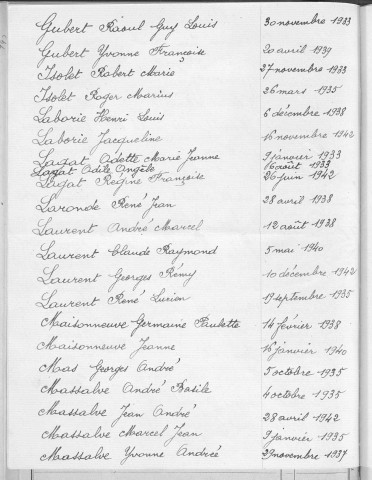 Gubert Raoul Guy Louis 30 novembre 1933
Gubert Yvonne Françoise 20 avril 1939
Isolet Robert Marie 27 novembre 1933
Isolet Roger Marius 26 mars 1935
Laborie Henri Louis 6 décembre 1938
Laborie Jacqueline 16 novembre 1942
Lagat Odette Marie Jeanne 9 janvier 1933
Lagat Odile Angèle 16 août 1933
Lagat Régine Françoise 26 juin 1942
Laronde René Jean 28 avril 1938
Laurent André Marcel 12 août 1938
Laurent Claude Raymond 5 mai 1940
Laurent Georges Rémy 10 décembre 1942
Laurent René Lucien 19 septembre 1935
Maisonneuve Germaine Paulette 14 février 1938
Maisonneuve Jeanne 16 janvier 1940
Mas Georges André 5 octobre 1935
Massalve André Basile 4 octobre 1935
Massalve Jean André 28 avril 1942
Massalve Marcel Jean 9 janvier 1935
Massalve Yvonne Andrée 29 novembre 1937